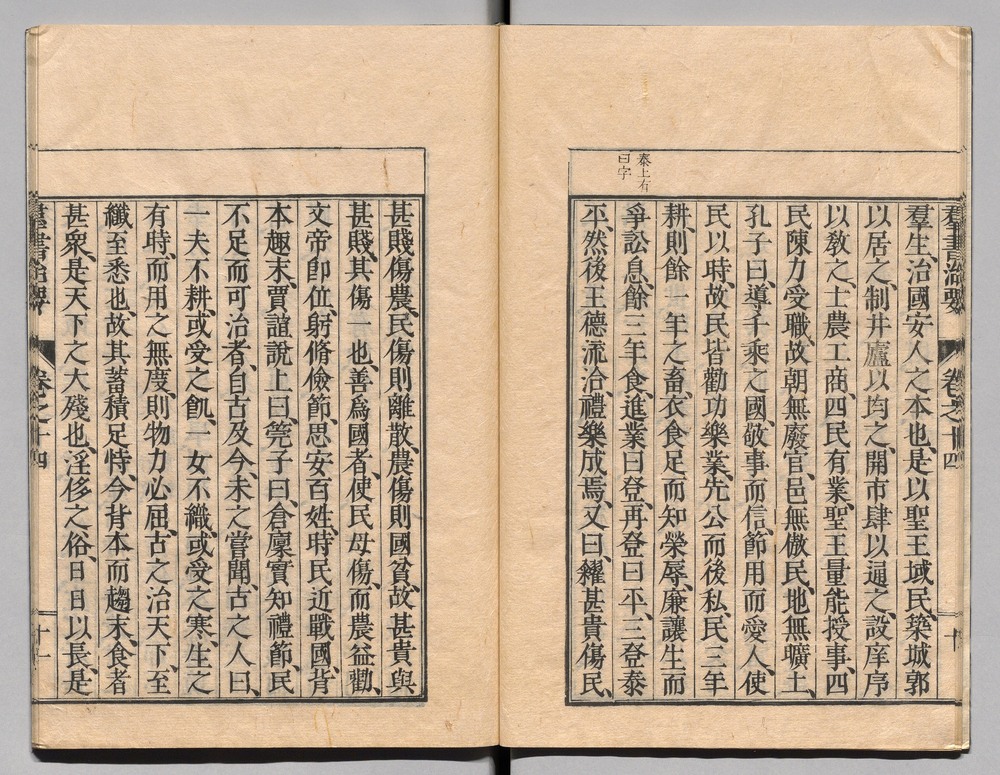 羣書治要 卷之十四
羣生、治國安人之本也、是以聖王域民、築城郭
以居之、制井廬以均之、開市肆以通之、設庠序
以敎之、士農工商、四民有業、聖王量能授事、四
民陳力受職、故朝無廢官、邑無傲民、地無曠土、
孔子曰、導千乘之國、敬事而信、節用而愛人、使
民以時、故民皆勸功樂業、先公而後私、民三年
耕、則餘一年之畜、衣食足而知榮辱、廉讓生而
爭訟息、餘三年食、進業曰登、再登曰平、三登泰
平、然後王德流洽、禮樂成焉、又曰、糴甚貴傷民、
泰上有
曰字
甚賤傷農、民傷則離散、農傷則國貧、故甚貴與
甚賤、其傷一也、善爲國者、使民母傷、而農益勸、
文帝卽位、躬脩儉節、思安百姓、時民近戰國、背
本趣末、賈誼說上曰、筦子曰、倉廩實知禮節、民
不足而可治者、自古及今、未之嘗聞、古之人曰、
一夫不耕、或受之飢、一女不織、或受之寒、生之
有時、而用之無度、則物力必屈、古之治天下、至
纖至悉也、故其蓄積足恃、今背本而趨末、食者
甚衆、是天下之大殘也、淫侈之俗、日日以長、是
羣書治要 卷之十四 十一